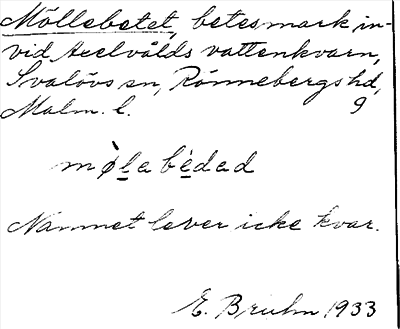 Möllebetet, betesmark in-
vid Axelvålds vattenkvarn,
Svalövs sn, Rönnebergs hd,
Malm. l. 9
mø̀la bèdad
Namnet lever icke kvar.
E. Bruhn 1933